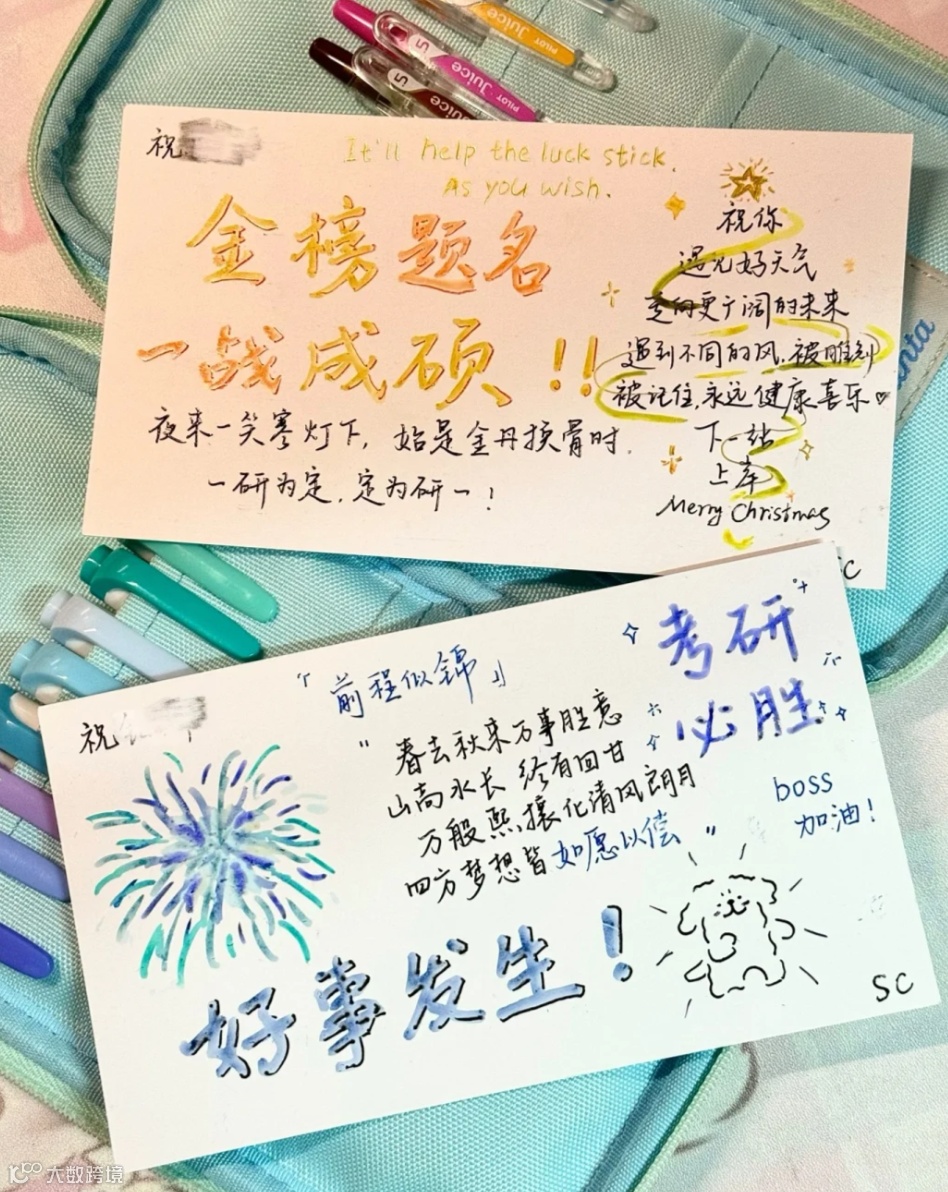 Juice
PILOT
Juice
PILOT
祝
It'll help the luck stick.
As you wish.
金榜题名
一战成硕!!
夜来一笑寒灯下,始是金丹换骨时.
一研为定,定为研一!
祝你
遇见好天气
走向更广阔的未来
遇到不同的风,被雕刻
被记住,永远健康喜乐♡
下一站
上岸
Merry Christmas
SC
祝
「前程似锦」
考研
必胜
"春去秋来万事胜意
山高水长 终有回甘
万般熙攘化清风朗月
四方梦想皆如愿以偿"
boss
加油!
好事发生!
SC
大数跨境